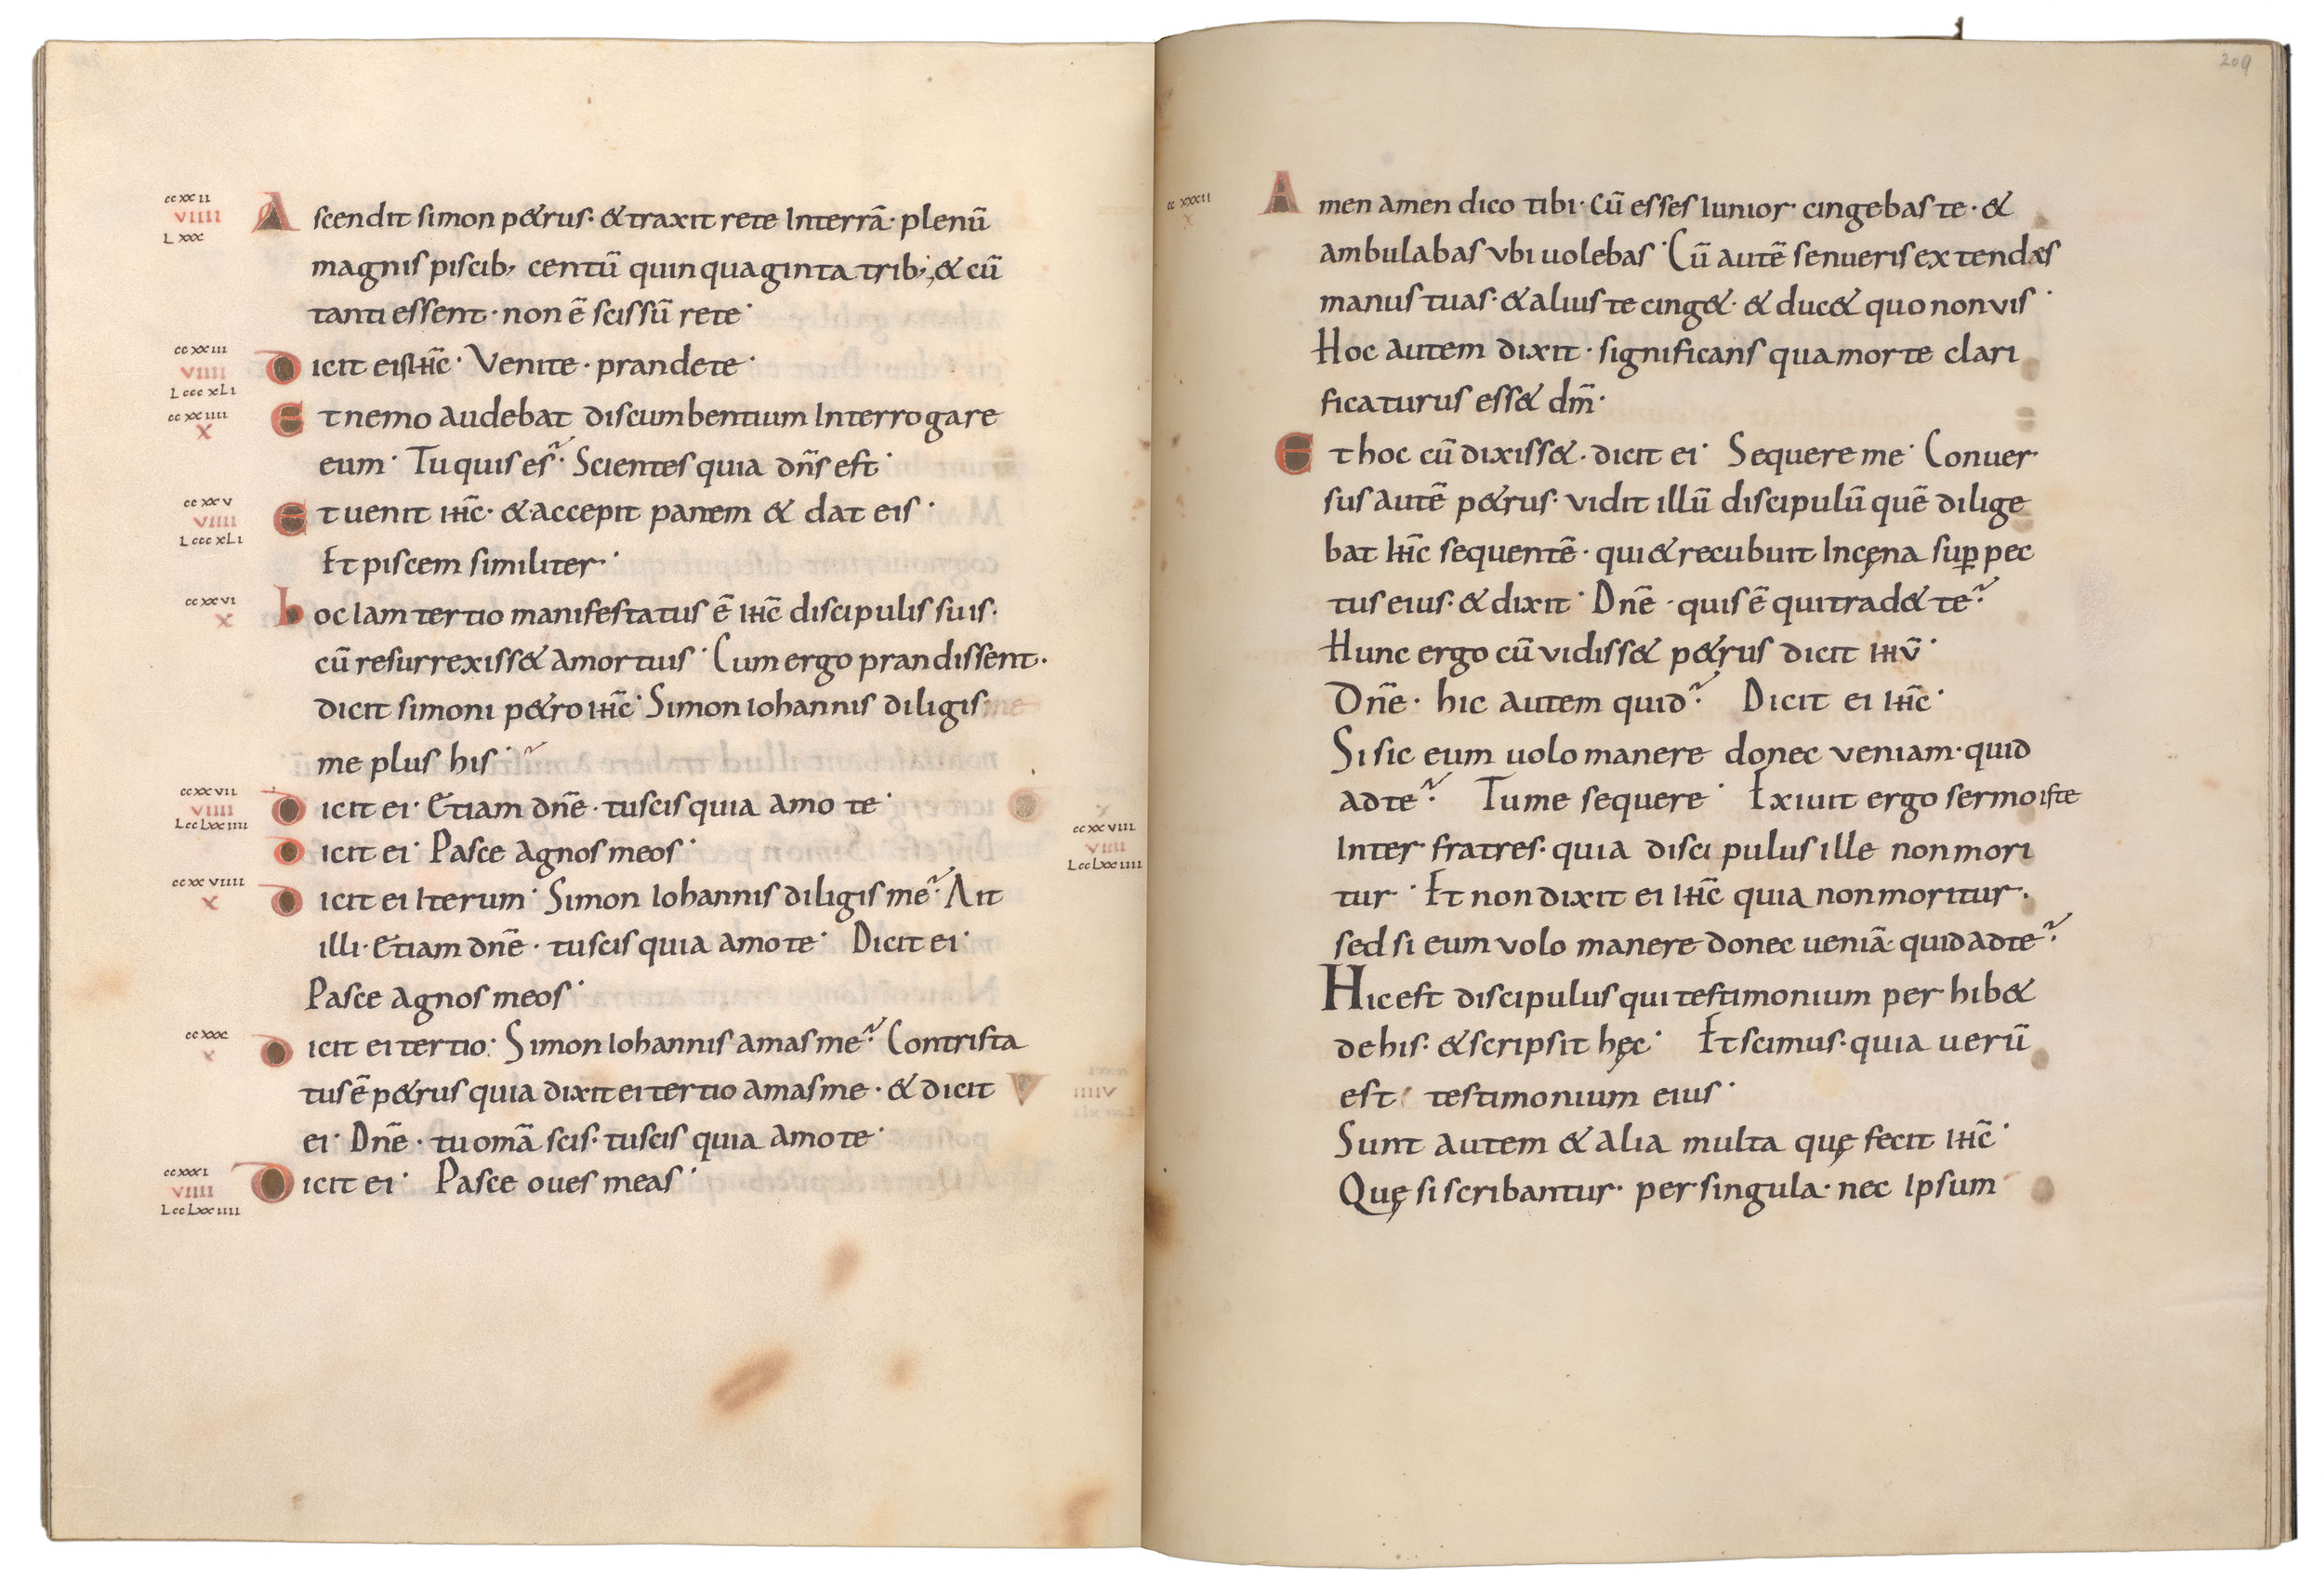 ccxxii
viiii
Lxxx
Ascendit simon p&rus· & traxit rete Interrā· plenū
magnis piscib; centū quinquaginta trib; & cū
tanti essent· non ē scissū rete·
ccxxiii
viiii
LcccxLi
Dicit eis ihc̄· Venite· prandete·
ccxxiiii
x
Et nemo audebat discumbentium Interrogare
eum· Tu quis es? Scientes quia dn̄s est·
ccxxv
viiii
LcccxLi
Et uenit ihc̄· & accepit panem & dat eis·
Et piscem similiter·
ccxxvi
x
hoc Iam tertio manifestatus ē ihc̄ discipulis suis·
cū resurrexiss& amortuis· Cum ergo prandissent·
dicit simoni p&ro ihc̄· Simon iohannis diligis
me plus his?
ccxxvii
viiii
LccLxxiiii
Dicit ei· Etiam dn̄e· tu scis quia amo te·
ccxxviii
viiii
LccLxxiiii
Dicit ei· Pasce agnos meos·
ccxxviiii
x
Dicit ei Iterum· Simon Iohannis diligis me? Ait
illi· Etiam dn̄e· tu scis quia amo te· Dicit ei·
Pasce agnos meos·
ccxxx
x
Dicit ei tertio· Simon Iohannis amas me? Contrista
tus ē p&rus quia dixit ei tertio amas me· & dicit
ei· Dn̄e· tu om̄a scis· tu scis quia amo te·
ccxxxi
viiii
LccLxxiiii
Dicit ei· Pasce oues meas·
209
ccxxxii
x
Amen amen dico tibi· Cū esses Iunior· cingebas te· &
ambulabas vbi uolebas· Cū autē senueris extendes
manus tuas· & alius te cing& · & duc& quo non vis·
Hoc autem dixit· significans qua morte clari
ficaturus ess& dm̄·
Et hoc cū dixiss& · dicit ei· Sequere me· Conuer
sus autē p&rus· vidit illū discipulū quē dilige
bat ihc̄ sequentē· qui & recubuit Incęna suꝑ pec
tus eius· & dixit· Dn̄e· quis ē qui trad& te?
Hunc ergo cū vidiss& p&rus dicit ihv̄·
Dn̄e· hic autem quid? Dicit ei ihc̄·
Si sic eum uolo manere donec veniam· quid
ad te? Tu me sequere· Exiuit ergo sermo iste
Inter fratres· quia discipulus ille non mori
tur· Et non dixit ei ihc̄ quia non moritur·
sed si eum volo manere donec ueniā· quid ad te?
Hic est discipulus qui testimonium perhib&
de his· & scripsit hęc· Et scimus· quia uerū
est testimonium eius·
Sunt autem & alia multa quę fecit ihc̄·
Quę si scribantur· per singula· nec Ipsum